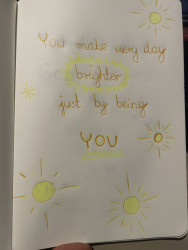 You make my day
brighter
just by being
YOU